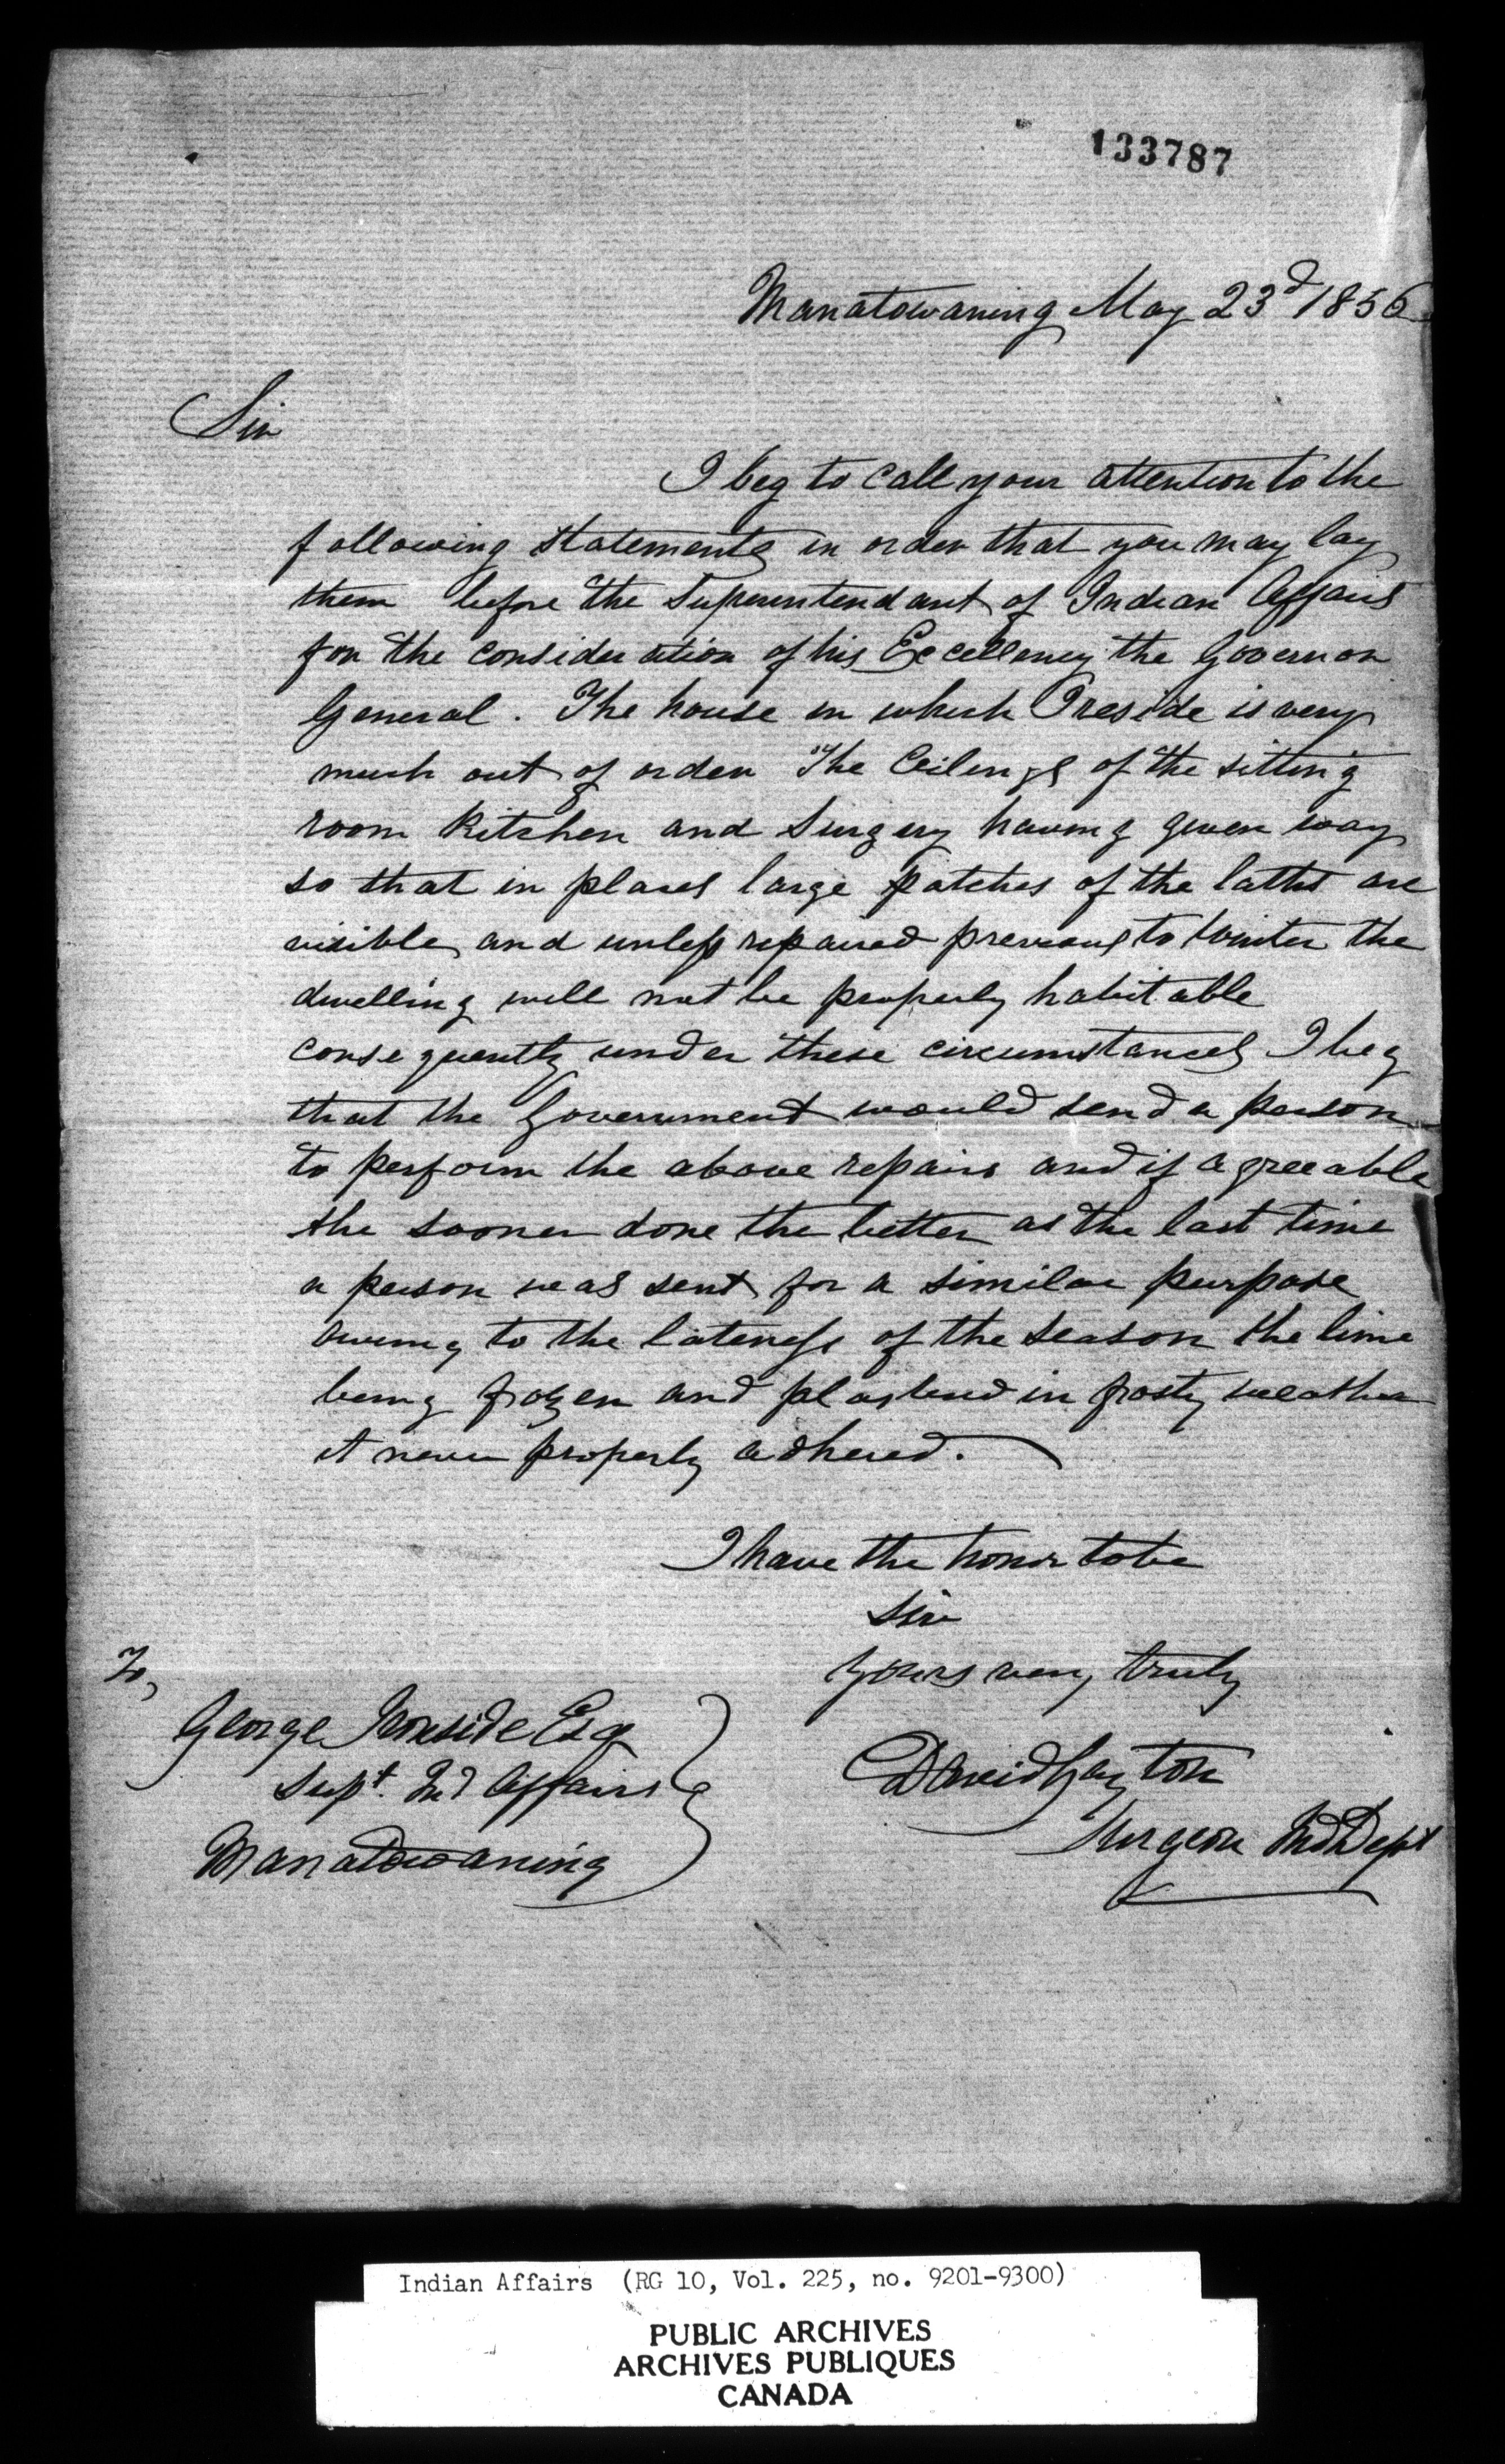 133787
Manatowaning May 23d 1856
Sir
I beg to call your attention to the
following statements in order that you may lay
them before the Superintendant of Indian Affairs
for the consideration of his Excellency the Governor
General. The house in which I reside is very
much out of order The Ceilings of the sitting
room Kitchen and Surgery having given way
so that in places large patches of the laths are
visible and unless repaired previous to Winter the
dwelling will not be properly habitable
consequently under these circumstances I beg
that the Government would send a person
to perform the above repairs and if agreeable
the sooner done the better as the last time
a person was sent for a similar purpose
owing to the lateness of the season the lime
being frozen and plastered in frosty weather
it never properly adhered.
I have the honor to be
Sir
Yours very truly
David Layton
Surgeon Ind Dept
To,
George Ironside Esq
Supt. Ind Affairs
Manatowaning
Indian Affairs (RG 10, Vol. 225, no. 9201-9300)
PUBLIC ARCHIVES
ARCHIVES PUBLIQUES
CANADA